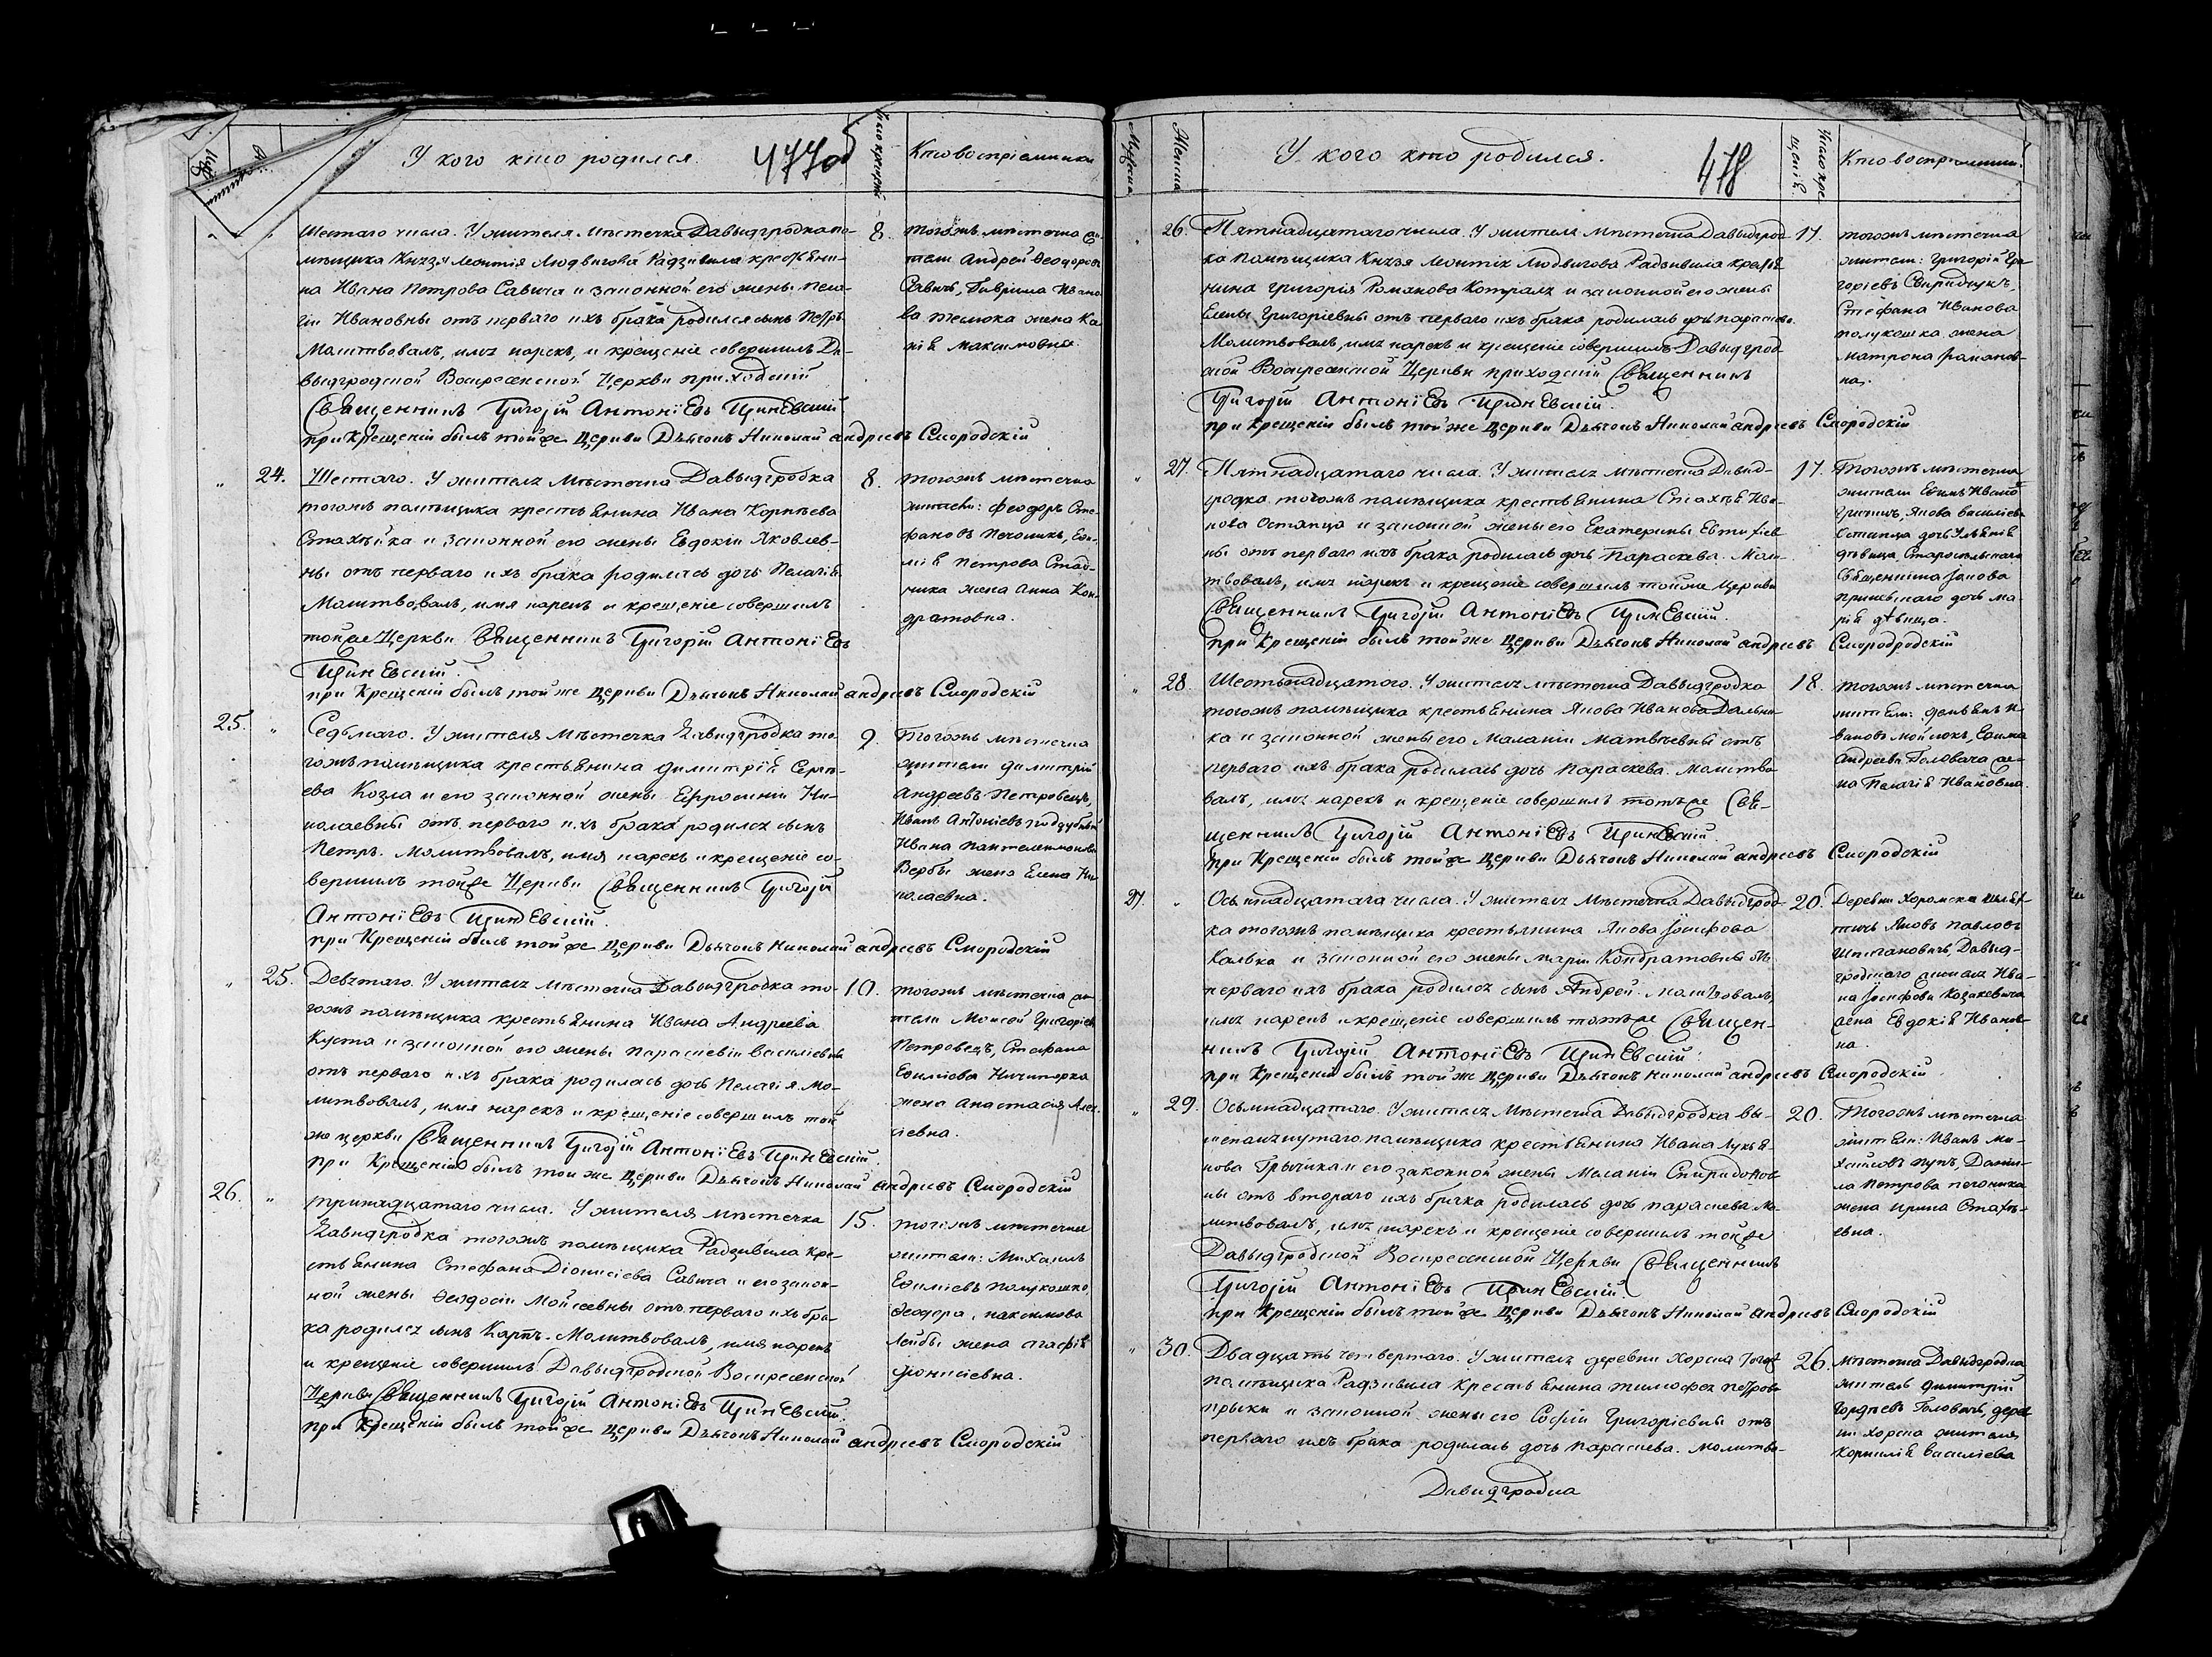 У кого кто родился.
477 об
Число крещенія
Кто воспріемники
шестаго числа. У жителя мѣстечка Давыдгродка по-
мѣщика Князя Леонтія Людвигова Радзивила крестьяни-
на Ивана Петрова Савича и законной его жены Пела-
гіи Ивановны отъ перваго ихъ брака родился сынъ Петръ
Молитвовалъ, имя нарекъ, и крещеніе совершилъ Да-
выдгродской Воскресенской Церкви приходскій
Священникъ Григорій Антоніевъ
при крещеніи былъ той же Церкви Дьячокъ Николай Андреевъ Смородскій
8.
тогожъ мѣстечка жи-
тели Андрей Ѳеодоровъ
Савичъ, Гаврила Ивано-
ва жена Ка-
Максимовна.
24.
Шестаго. У жителя мѣстечка Давыдгродка
тогожъ помѣщика крестьянина Ивана Корнѣева
Стахѣйка и законной его жены Евдокіи Яковлев-
ны отъ перваго ихъ брака родилась дочь Пелагія.
Молитвовалъ, имя нарекъ и крещеніе совершилъ
тойже Церкви Священникъ Григорій Антоніевъ
при Крещеніи былъ той же Церкви Дьячокъ Николай Андреевъ Смородскій
8.
тогожъ мѣстечка
жители: Феодоръ Сте-
фановъ
Петрова
жена Анна Кон-
дратовна.
25.
Седьмаго. У жителя мѣстечка Давидгродка то-
гожъ помѣщика крестьянина Димитрія Серге-
ева Козла и его законной жены Ефросиніи Ни-
колаевны отъ перваго ихъ брака родился сынъ
Петръ. Молитвовалъ, имя нарекъ и крещеніе со-
вершилъ тойже Церкви Священникъ Григорій
Антоніевъ
при Крещеніи былъ той же Церкви Дьячокъ Николай Андреевъ Смородскій
9.
Тогожъ мѣстечка
жители Димитрій
Андреевъ Петровецъ,
Иванъ Антоніевъ Поддубный
Ивана Пантелеимонова
Вербы жена Елена Ни-
колаевна.
25.
Девятаго. У жителя мѣстечка Давыдгродка то-
гожъ помѣщика крестьянина Ивана Андреева
Куста и законной его жены Параскевіи Василіевны
отъ перваго ихъ брака родилась дочь Пелагія. Мо-
литвовалъ, имя нарекъ и крещеніе совершилъ той
же церкви Священникъ Григорій Антоніевъ
при Крещеніи былъ той же Церкви Дьячокъ Николай Андреевъ Смородскій
10.
тогожъ мѣстечка жи-
тели Моисей Григоріевъ
Петровецъ, Стефана
Ничипорка
жена Анастасія Алек-
сіевна.
26.
тринадцатаго числа. У жителя мѣстечка
Давидгродка тогожъ помѣщика Радзивила кре-
стьянина Стефана Діонисіева Савича и его закон-
ной жены Ѳеодосіи Моисеевны отъ перваго ихъ бра-
ка родился сынъ Карпъ. Молитвовалъ, имя нарекъ
и крещеніе совершилъ Давыдгродской Воскресенской
Церкви Священникъ Григорій Антоніевъ
при Крещеніи былъ той же Церкви Дьячокъ Николай Андреевъ Смородскій
15.
тогожъ мѣстечка
жители: Михаилъ
Полукошко,
Ѳеодора
Лейбы жена Агафія
Діонисіевна.
Мужеска
Женска
У кого кто родился.
478
Число кре-
щенія.
Кто воспріемники.
26.
Пятнадцатаго числа. У жителя мѣстечка Давыдгрод-
ка помѣщика Князя Леонтія Людвигова Радзивила крестья-
нина Григорія Романова и законной его жены
Елены Григоріевны отъ перваго ихъ брака родилась дочь Параскева.
Молитвовалъ, имя нарекъ и крещеніе совершилъ Давыдгрод-
ской Воскресенской Церкви приходскій Священникъ
Григорій Антоніевъ
при Крещеніи былъ той же Церкви Дьячокъ Николай Андреевъ Смородскій
17.
тогожъ мѣстечка
жители: Григорій Гри-
горіевъ Свиридчукъ,
Стефана Иванова
Полукошка жена
Матрона Романов-
на.
27.
Пятнадцатаго числа. У жителя мѣстечка Давид-
гродка тогожъ помѣщика крестьянина Ива-
нова Остапца и законной жены его Екатерины
ны отъ перваго ихъ брака родилась дочь Параскева. Моли-
твовалъ, имя нарекъ и крещеніе совершилъ тойже Церкви
Священникъ Григорій Антоніевъ
при Крещеніи былъ той же Церкви Дьячокъ Николай Андреевъ Смородродскій
17.
Тогожъ мѣстечка
жители
Якова Василіева
Остапца дочь
дѣвица,
Священника
дочь Ма-
рія дѣвица.
28
Шестьнадцатаго. У жителя мѣстечка Давыдгродка
тогожъ помѣщика крестьянина Якова Иванова
ка и законной жены его Маланіи Матвѣевны отъ
перваго ихъ брака родилась дочь Параскева. Молитво-
валъ, имя нарекъ и крещеніе совершилъ тотъже Свя-
щенникъ Григорій Антоніевъ
при Крещеніи былъ той же Церкви Дьячокъ Николай Андреевъ Смородскій
18.
тогожъ мѣстечка
жители: Демьянъ И-
вановъ
Андреева Головача же-
на Пелагія Ивановна.
27.
Осьмнадцатага числа. У жителя мѣстечка Давыдгрод-
ка тогожъ помѣщика крестьянина Якова Іосифова
и законной его жены Маріи Кондратовны отъ
перваго ихъ брака родился сынъ Андрей. Молитвовалъ,
имя нарекъ и крещеніе совершилъ тотъже Священ-
никъ Григорій Антоніевъ
при Крещеніи былъ той же Церкви Дьячокъ Николай Андреевъ Смородскій
20.
Деревни Хоромска
Яковъ Павловъ
Давыд-
гродскаго жителя Ива-
на Іосифова Козакевича
жена Евдокія Иванов-
на.
29.
Осьмнадцатаго. У жителя мѣстечка Давыдгродка вы-
шепомянутаго помѣщика крестьянина Ивана Лукья-
нова и его законной жены Маланіи Спиридонов-
ны отъ втораго ихъ брака родилась дочь Параскева. Мо-
литвовалъ, имя нарекъ и крещеніе совершилъ тойже
Давыдгродской Воскресенской Церкви Священникъ
Григорій Антоніевъ
при Крещеніи былъ той же Церкви Дьячокъ Николай Андреевъ Смородскій
20.
Тогожъ мѣстечка
жители: Иванъ Ми-
хайловъ Данги-
ла Петрова
жена Ирина Стахѣ-
евна.
30.
Двадцать четвертаго. У жителя деревни Хорска тогожъ
помѣщика Радзивила крестьянина Тимофея Петрова
и законной жены его Софіи Григоріевны отъ
перваго ихъ брака родилась дочь Параскева. Молитво-
26.
Мѣстечка Давыдгродка
житель Димитрій
Гордѣевъ Головачъ, дерев-
ни Хорска жителя
Корнилія Василіева
Давидгродка